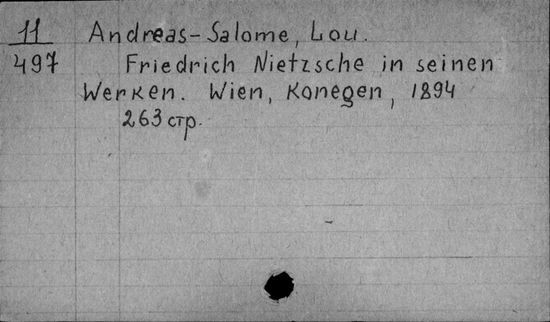 11
497
Andreas-Salome, Lou.
Friedrich Nietzsche in seinen
Werken. Wien, Konegen, 1894
263 стр.